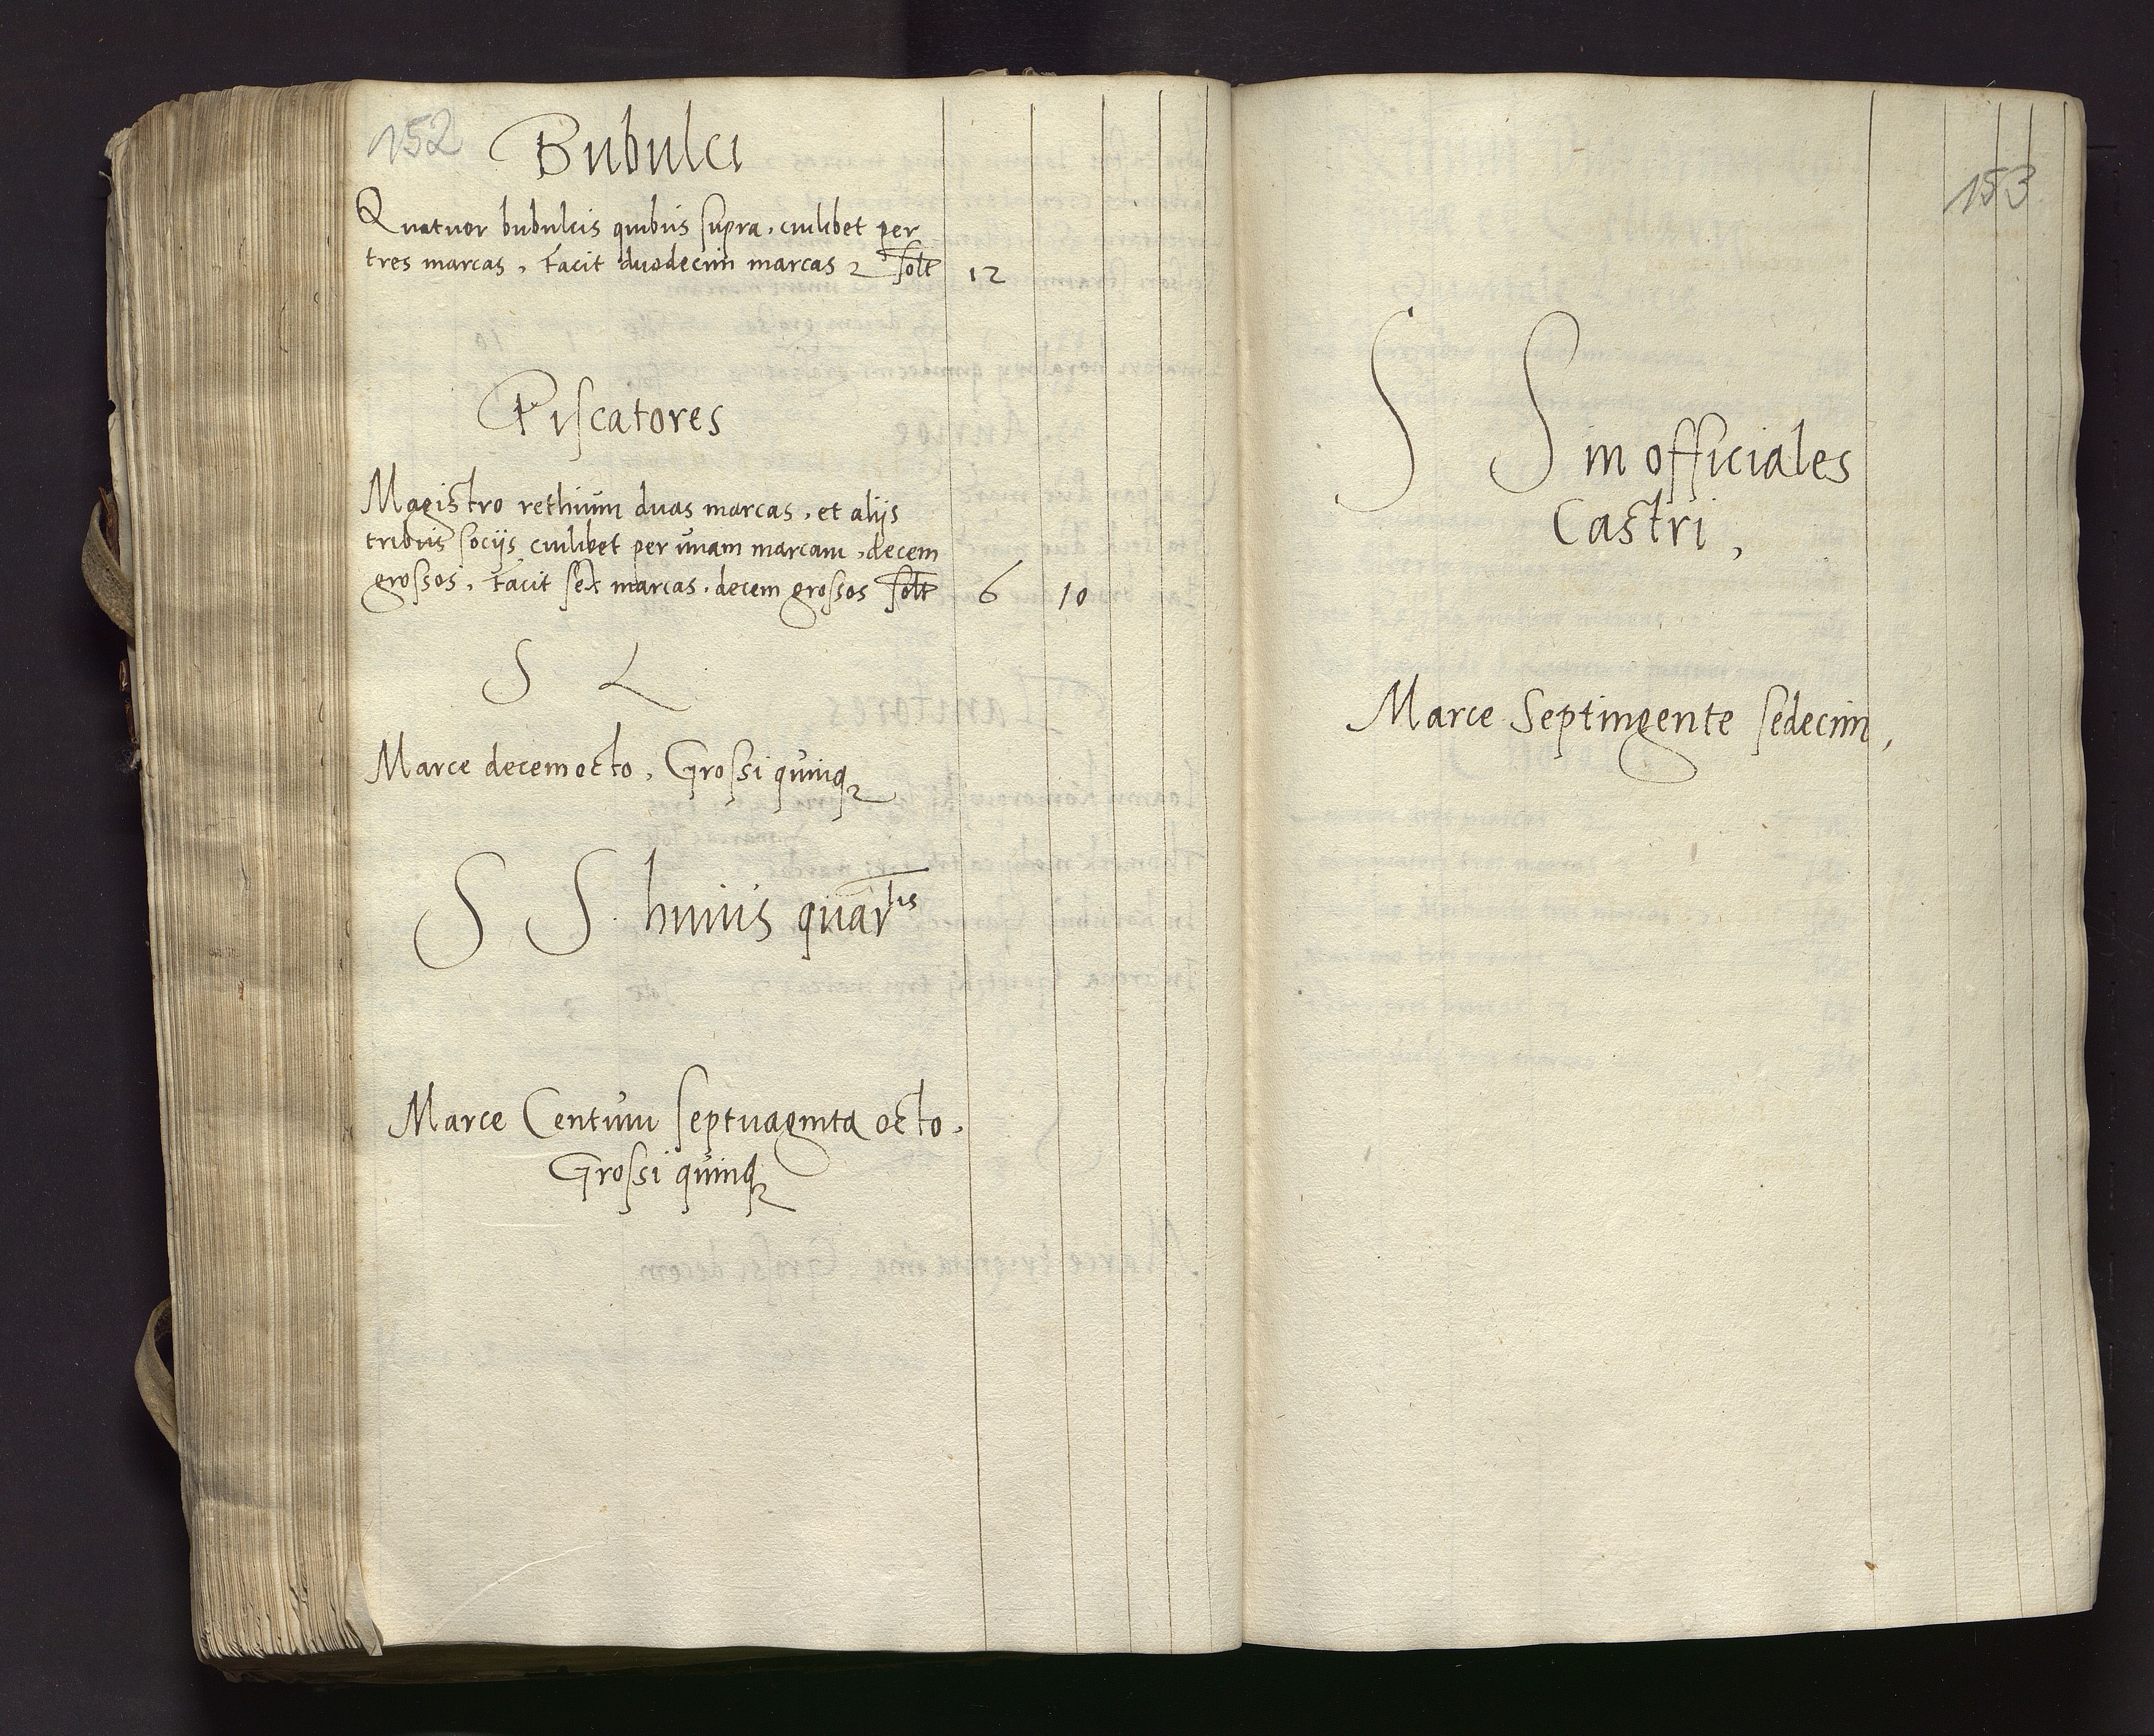 152
Bubulci
Quatuor bubulcis quibus supra, cuilibet per
tres marcas, Facit duodecim marcas solt 12
Piscatores
Magistro rethium duas marcas, et aliis
tribus sociis cuilibet per unam marcam, decem
grossos, Facit sex marcas, decem grossos solt 6 10
S L
Marce decemocto, Grossi quinq
S S huius quartis
Marce Centum septuaginta octo,
Grossi quinq
153
S S in officiales
Castri,
Marce Septingente sedecim,